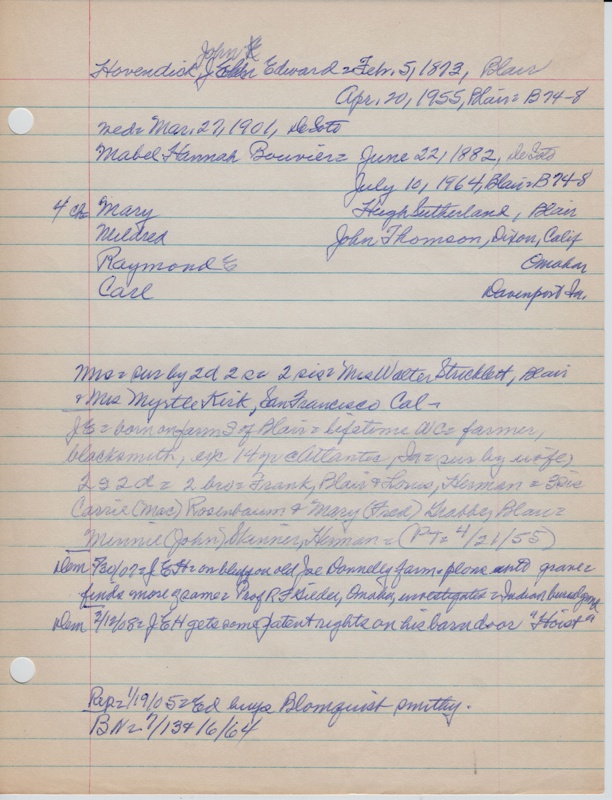 John
Hovendick, J Edward = Feb. 5, 1873, Blair
Apr. 20, 1955, Blair = B 74-8
wed = Mar. 27, 1901, DeSoto
Mabel Hannah Bouvier = June 22, 1882, DeSoto
July 10, 1964, Blair = B 74-8
4 ch = Mary Hugh Sutherland, Blair
Mildred John Thomson, Dixon, Calif
Raymond E Omaha
Carl Davenport Ia.
Mrs = sur by 2d 2 s = 2 sis = Mrs Walter Stricklett, Blair
+ Mrs Myrtle Kirk, San Francisco Cal -
JE = born on farm S of Blair = lifetime WC = farmer,
blacksmith, exc 14 yr c Atlantic, Ia = sur by wife,
2 s 2 d = 2 bro = Frank, Blair + Louis, Herman = 3 sis
Carrie (Mac) Rosenbaum + Mary (Fred) Grabbe, Blair =
Minnie (John) Skinner, Herman = (PT = 4/21/55)
Dem 7/30/07 = J E H = on bluff on old Joe Donnelly farm = plows into grave =
finds more of same = Prof R F Gilder, Omaha, investigates = Indian burial grnd
Dem 3/12/08 = J E H gets some patent rights on his barn door "Hoist"
Pap = 1/19/05 = Ed buys Blomquist smithy.
BN = 7/13 + 16/64